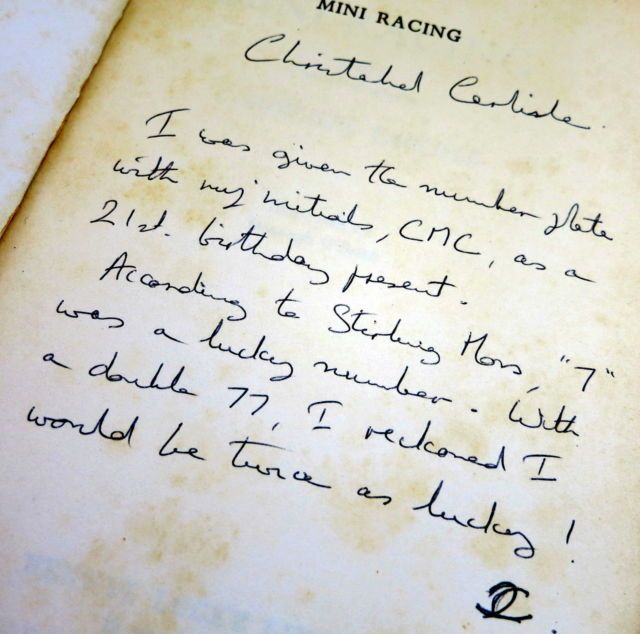 MINI RACING
Christabel Carlisle.
I was given the number plate
with my initials, CMC, as a
21st. birthday present.
According to Stirling Moss, "7"
was a lucky number. With
a double 77, I reckoned I
would be twice as lucky!
CC.